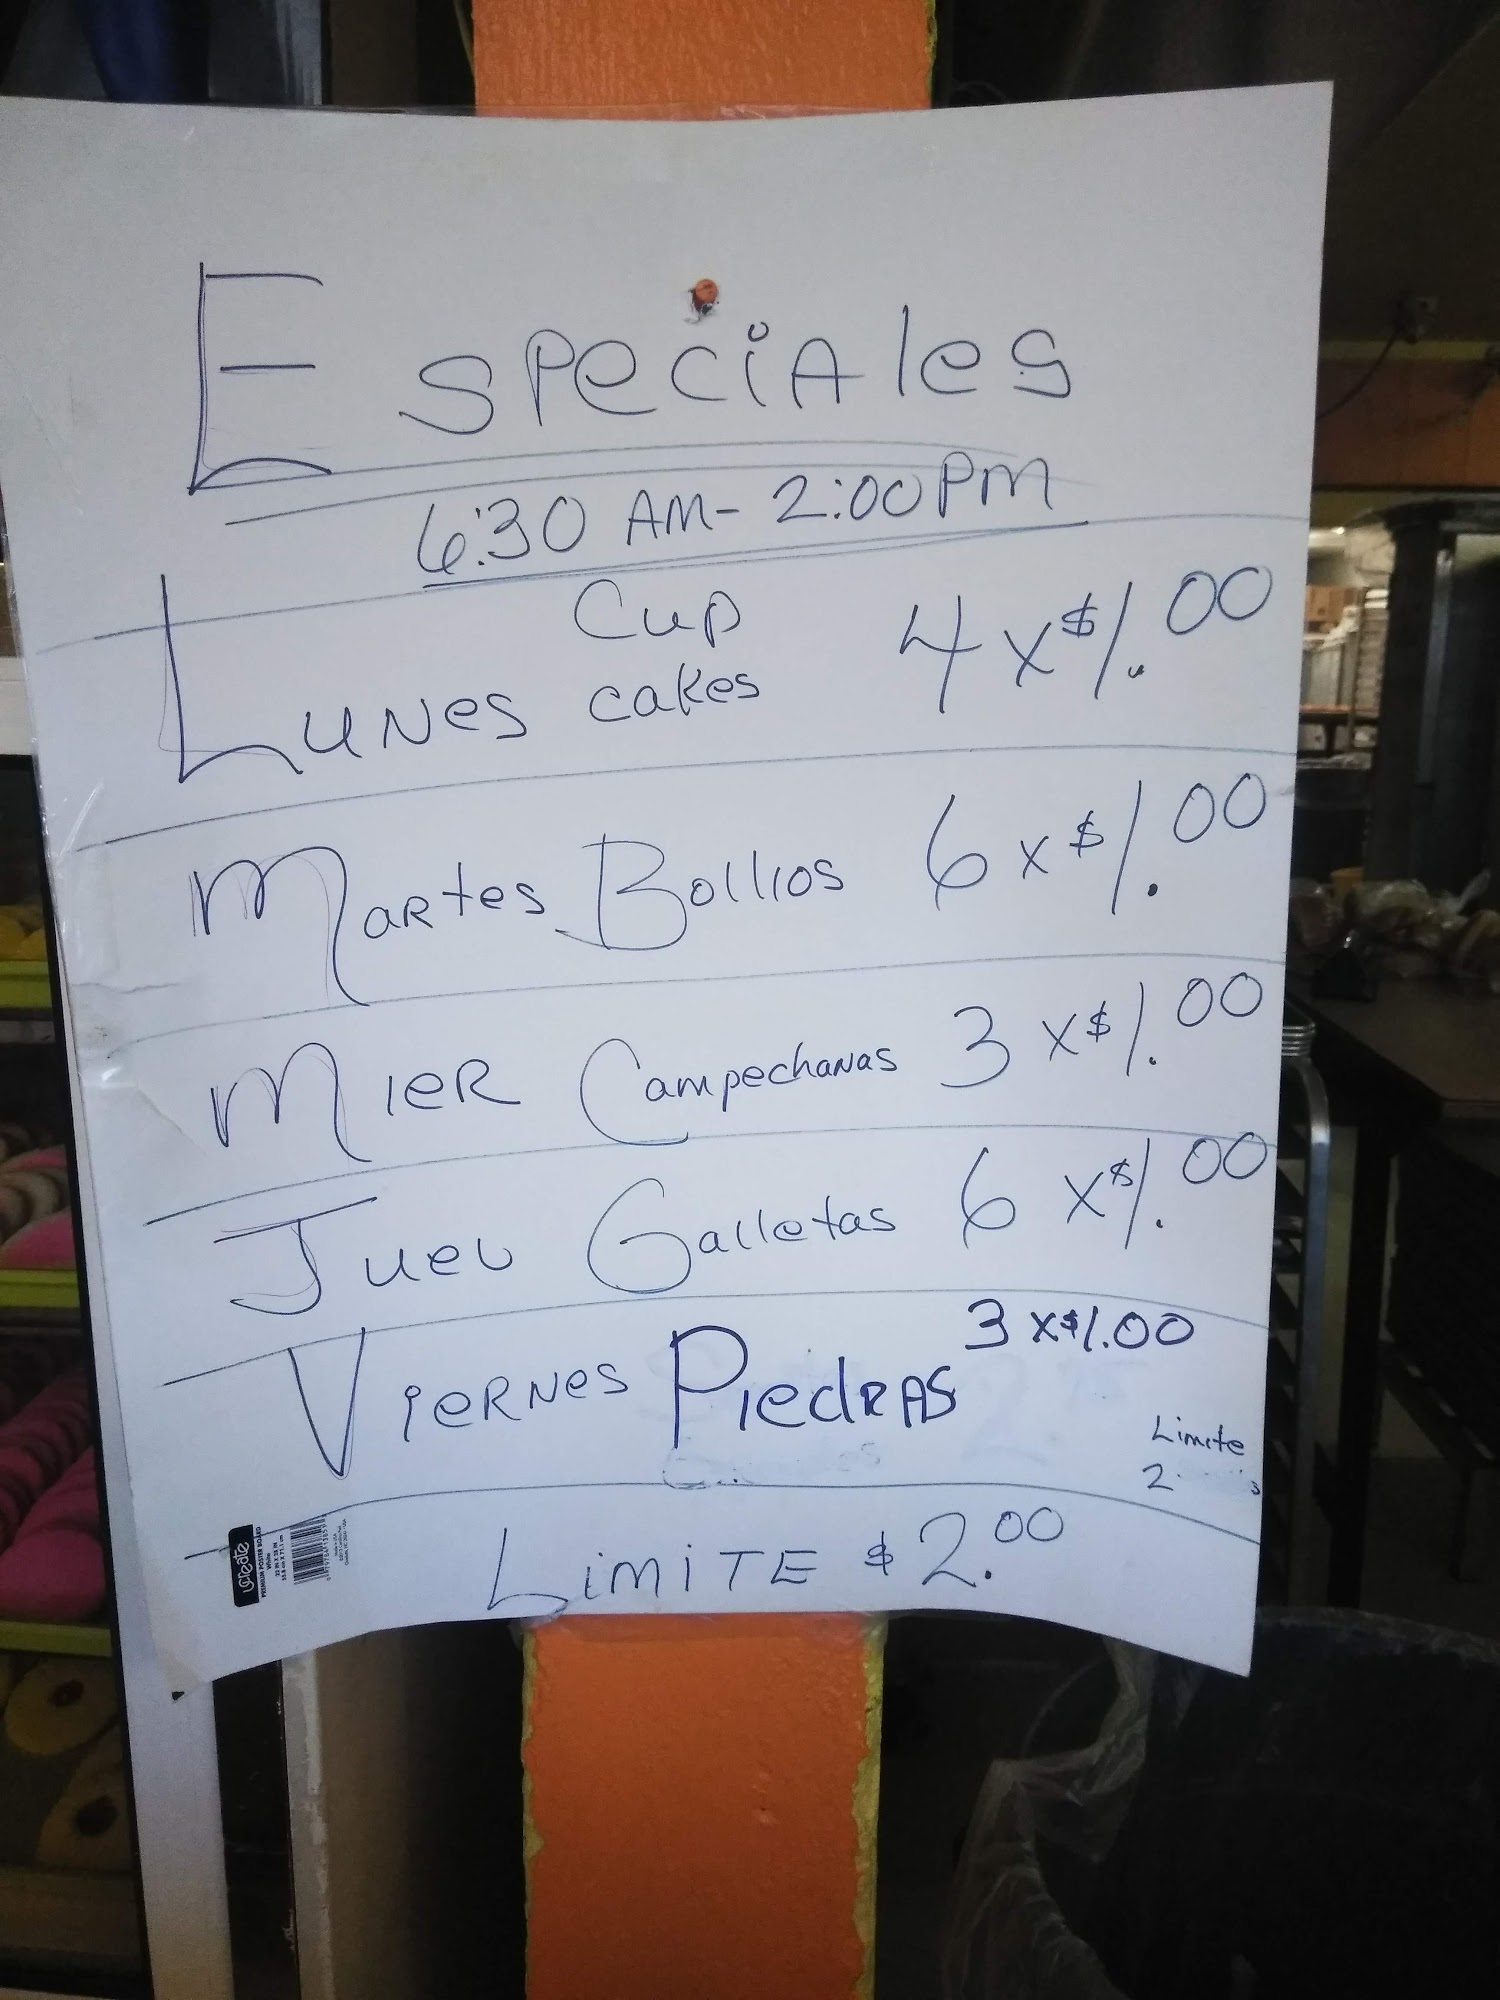 Especiales
6:30 AM - 2:00 PM
Cup
Lunes cakes 4 x $1.00
Martes Bollios 6 x $1.00
Mier Campechanas 3 x $1.00
Juev Galletas 6 x $1.00
Viernes Piedras 3 x $1.00
Limite
2
LIMITE $2.00
UCreate
PREMIUM POSTER BOARD
White